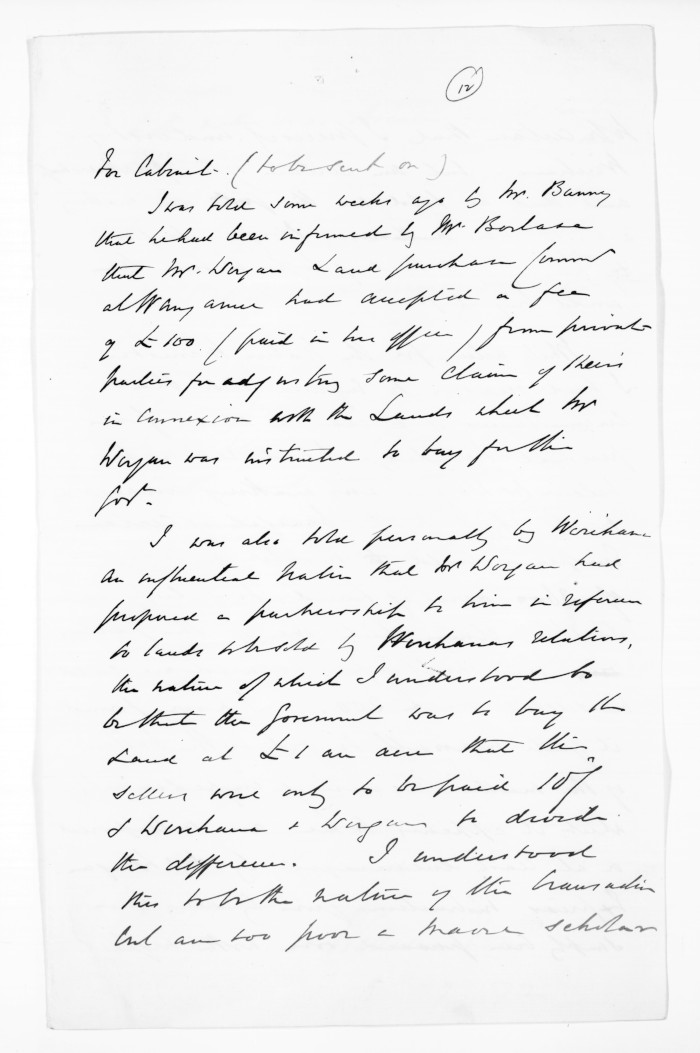 12
For Cabinet. (to be sent on)
I was told some weeks ago by Mr. Banney
that he had been informed by Mr. Borlase
that Mr. Worgan Land purchase Commr
at Wanganui had accepted a fee
of £100. (paid in his office) from private
parties for adjusting some claim of theirs
in connexion with the Lands which Mr
Worgan was instructed to buy for the
Govt.
I was also told personally by Wirihana
an influential Native that Mr Worgan had
proposed a partnership to him in reference
to lands to be sold by Wirihana's relations,
the nature of which I understood to
be that the Government was to buy the
Land at £1 an acre that the
sellers were only to be paid 10/
& Wirihana & Worgan to divide
the difference. I understood
this to be the nature of the transaction
but am too poor a Maori scholar